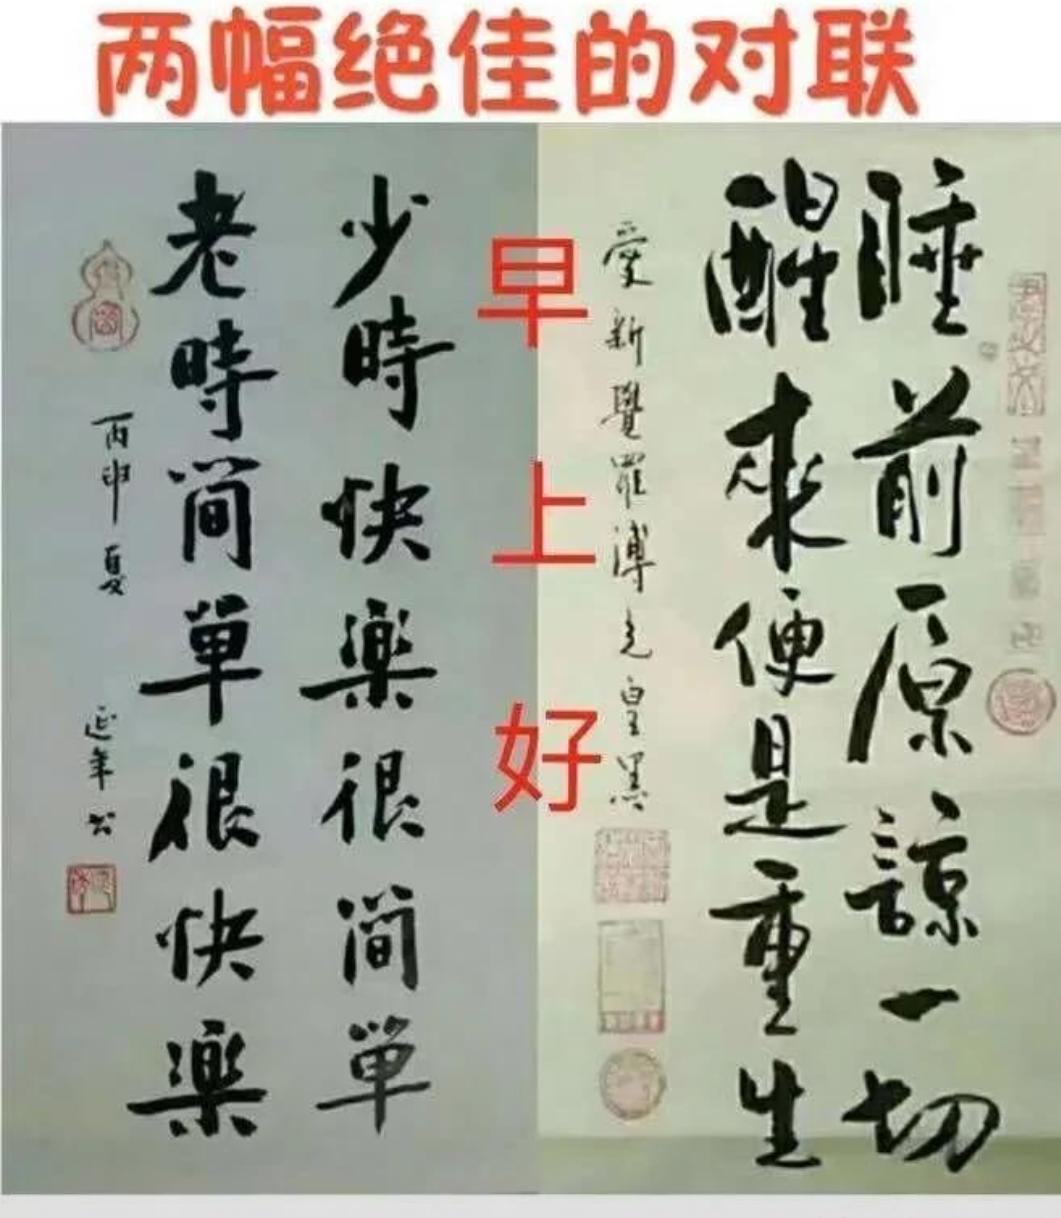 两幅绝佳的对联
睡前原諒一切
醒來便是重生
愛新覺羅溥
早上好
少時快樂很簡單
老時簡單很快樂
丙申夏 延年书